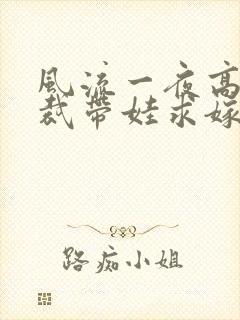 风流一夜高
裁带娃求嫁
路痴小姐